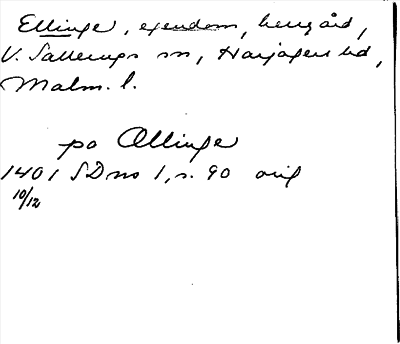 Ellinge, ejendom, herrgård,
V. Sallerups sn, Harjagers hd,
Malm. l.
pa Ællinge
1401 SD no 1, s. 90 orig
10/12